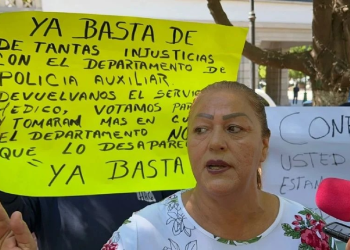 YA BASTA DE
DE TANTAS INJUSTICIAS
CON EL DEPARTAMENTO DE
POLICIA AUXILIAR,
DEVUELVANOS EL SERVIC
MEDICO, VOTAMOS PAR
TOMARAN MAS EN CU
EL DEPARTAMENTO NO
QUE LO DESAPARE
YA BASTA
CON
USTED
ESTAN